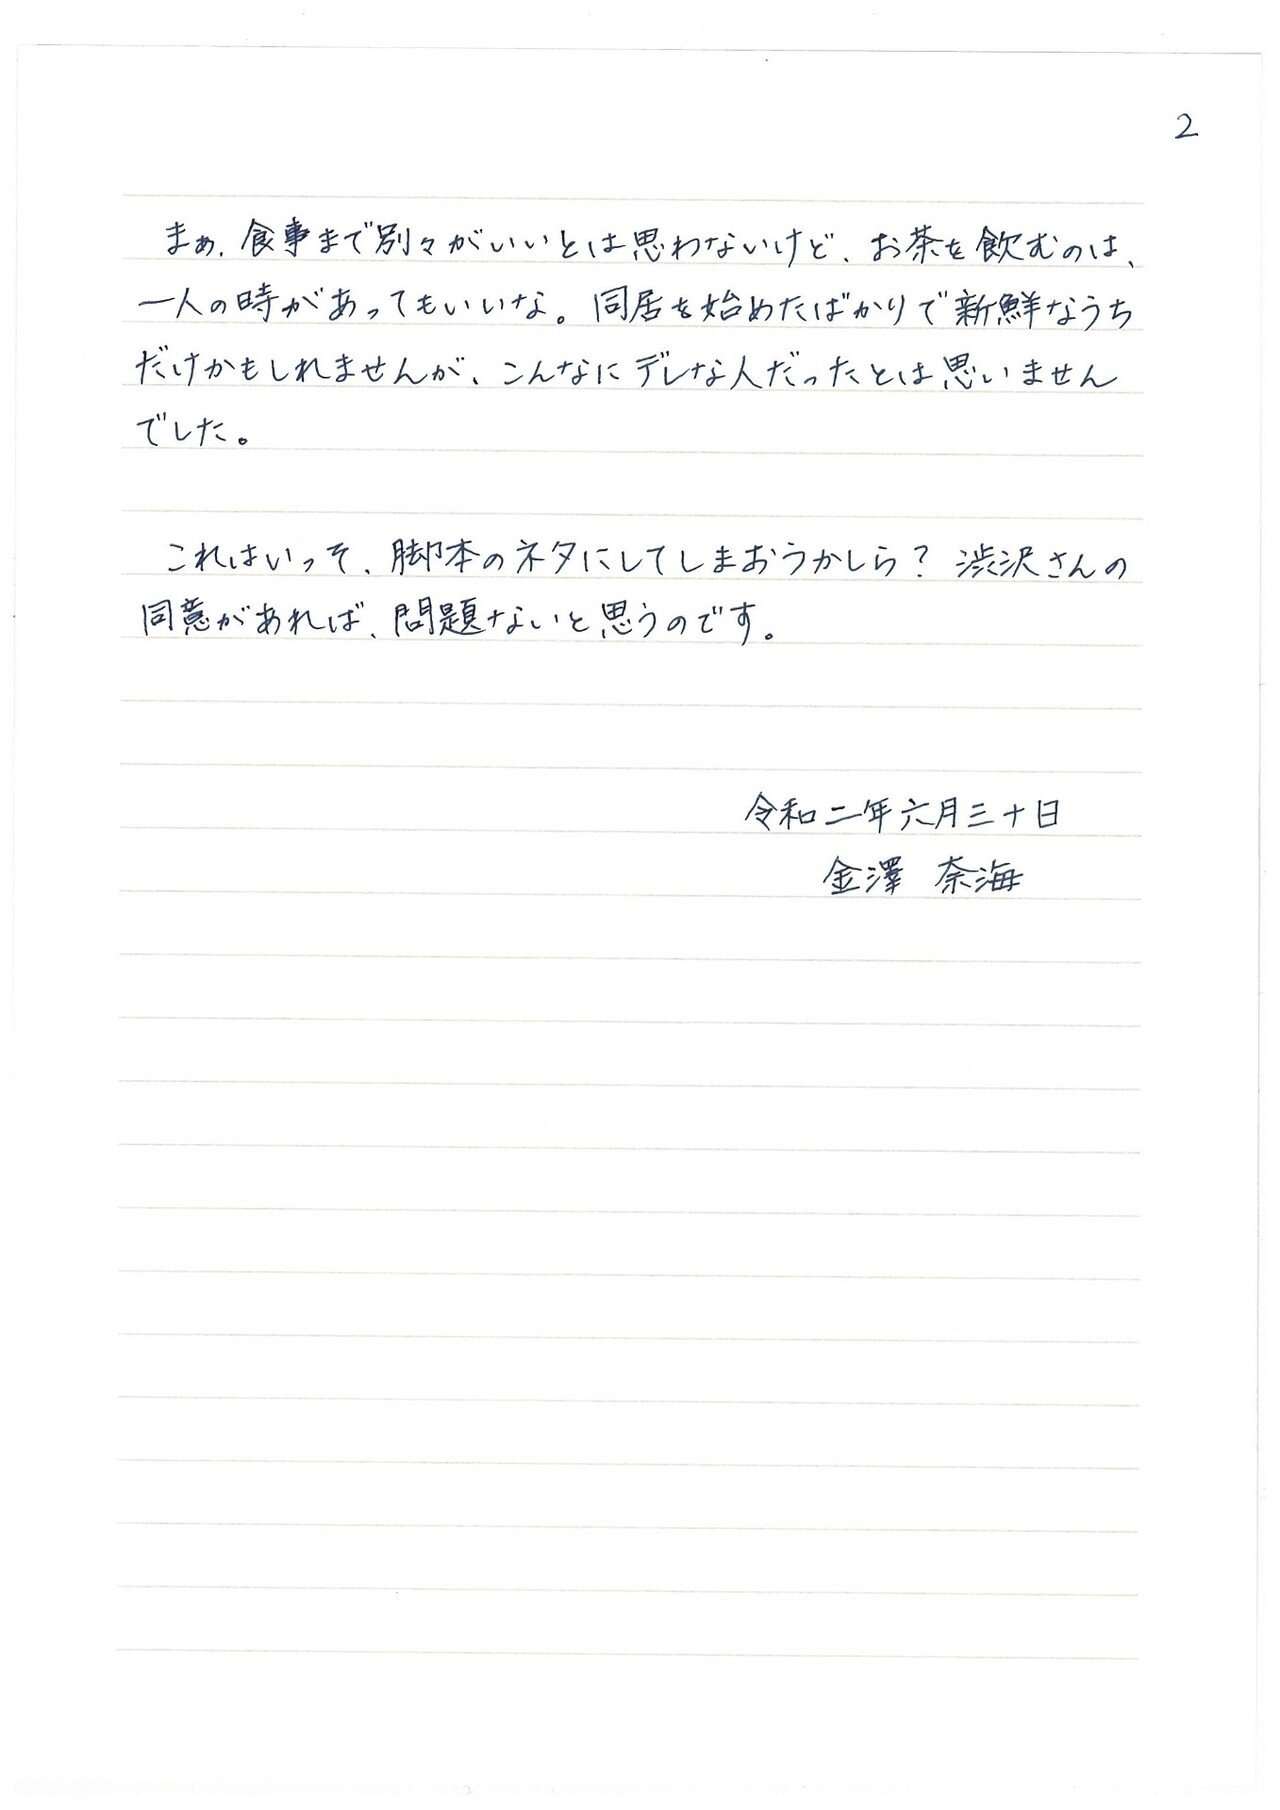 2
まぁ、食事まで別々がいいとは思わないけど、お茶を飲むのは、
一人の時があってもいいな。同居を始めたばかりで新鮮なうち
だけかもしれませんが、こんなにデレな人だったとは思いません
でした。
これはいっそ、脚本のネタにしてしまおうかしら？渋沢さんの
同意があれば、問題ないと思うのです。
令和二年六月三十日
金澤 奈海